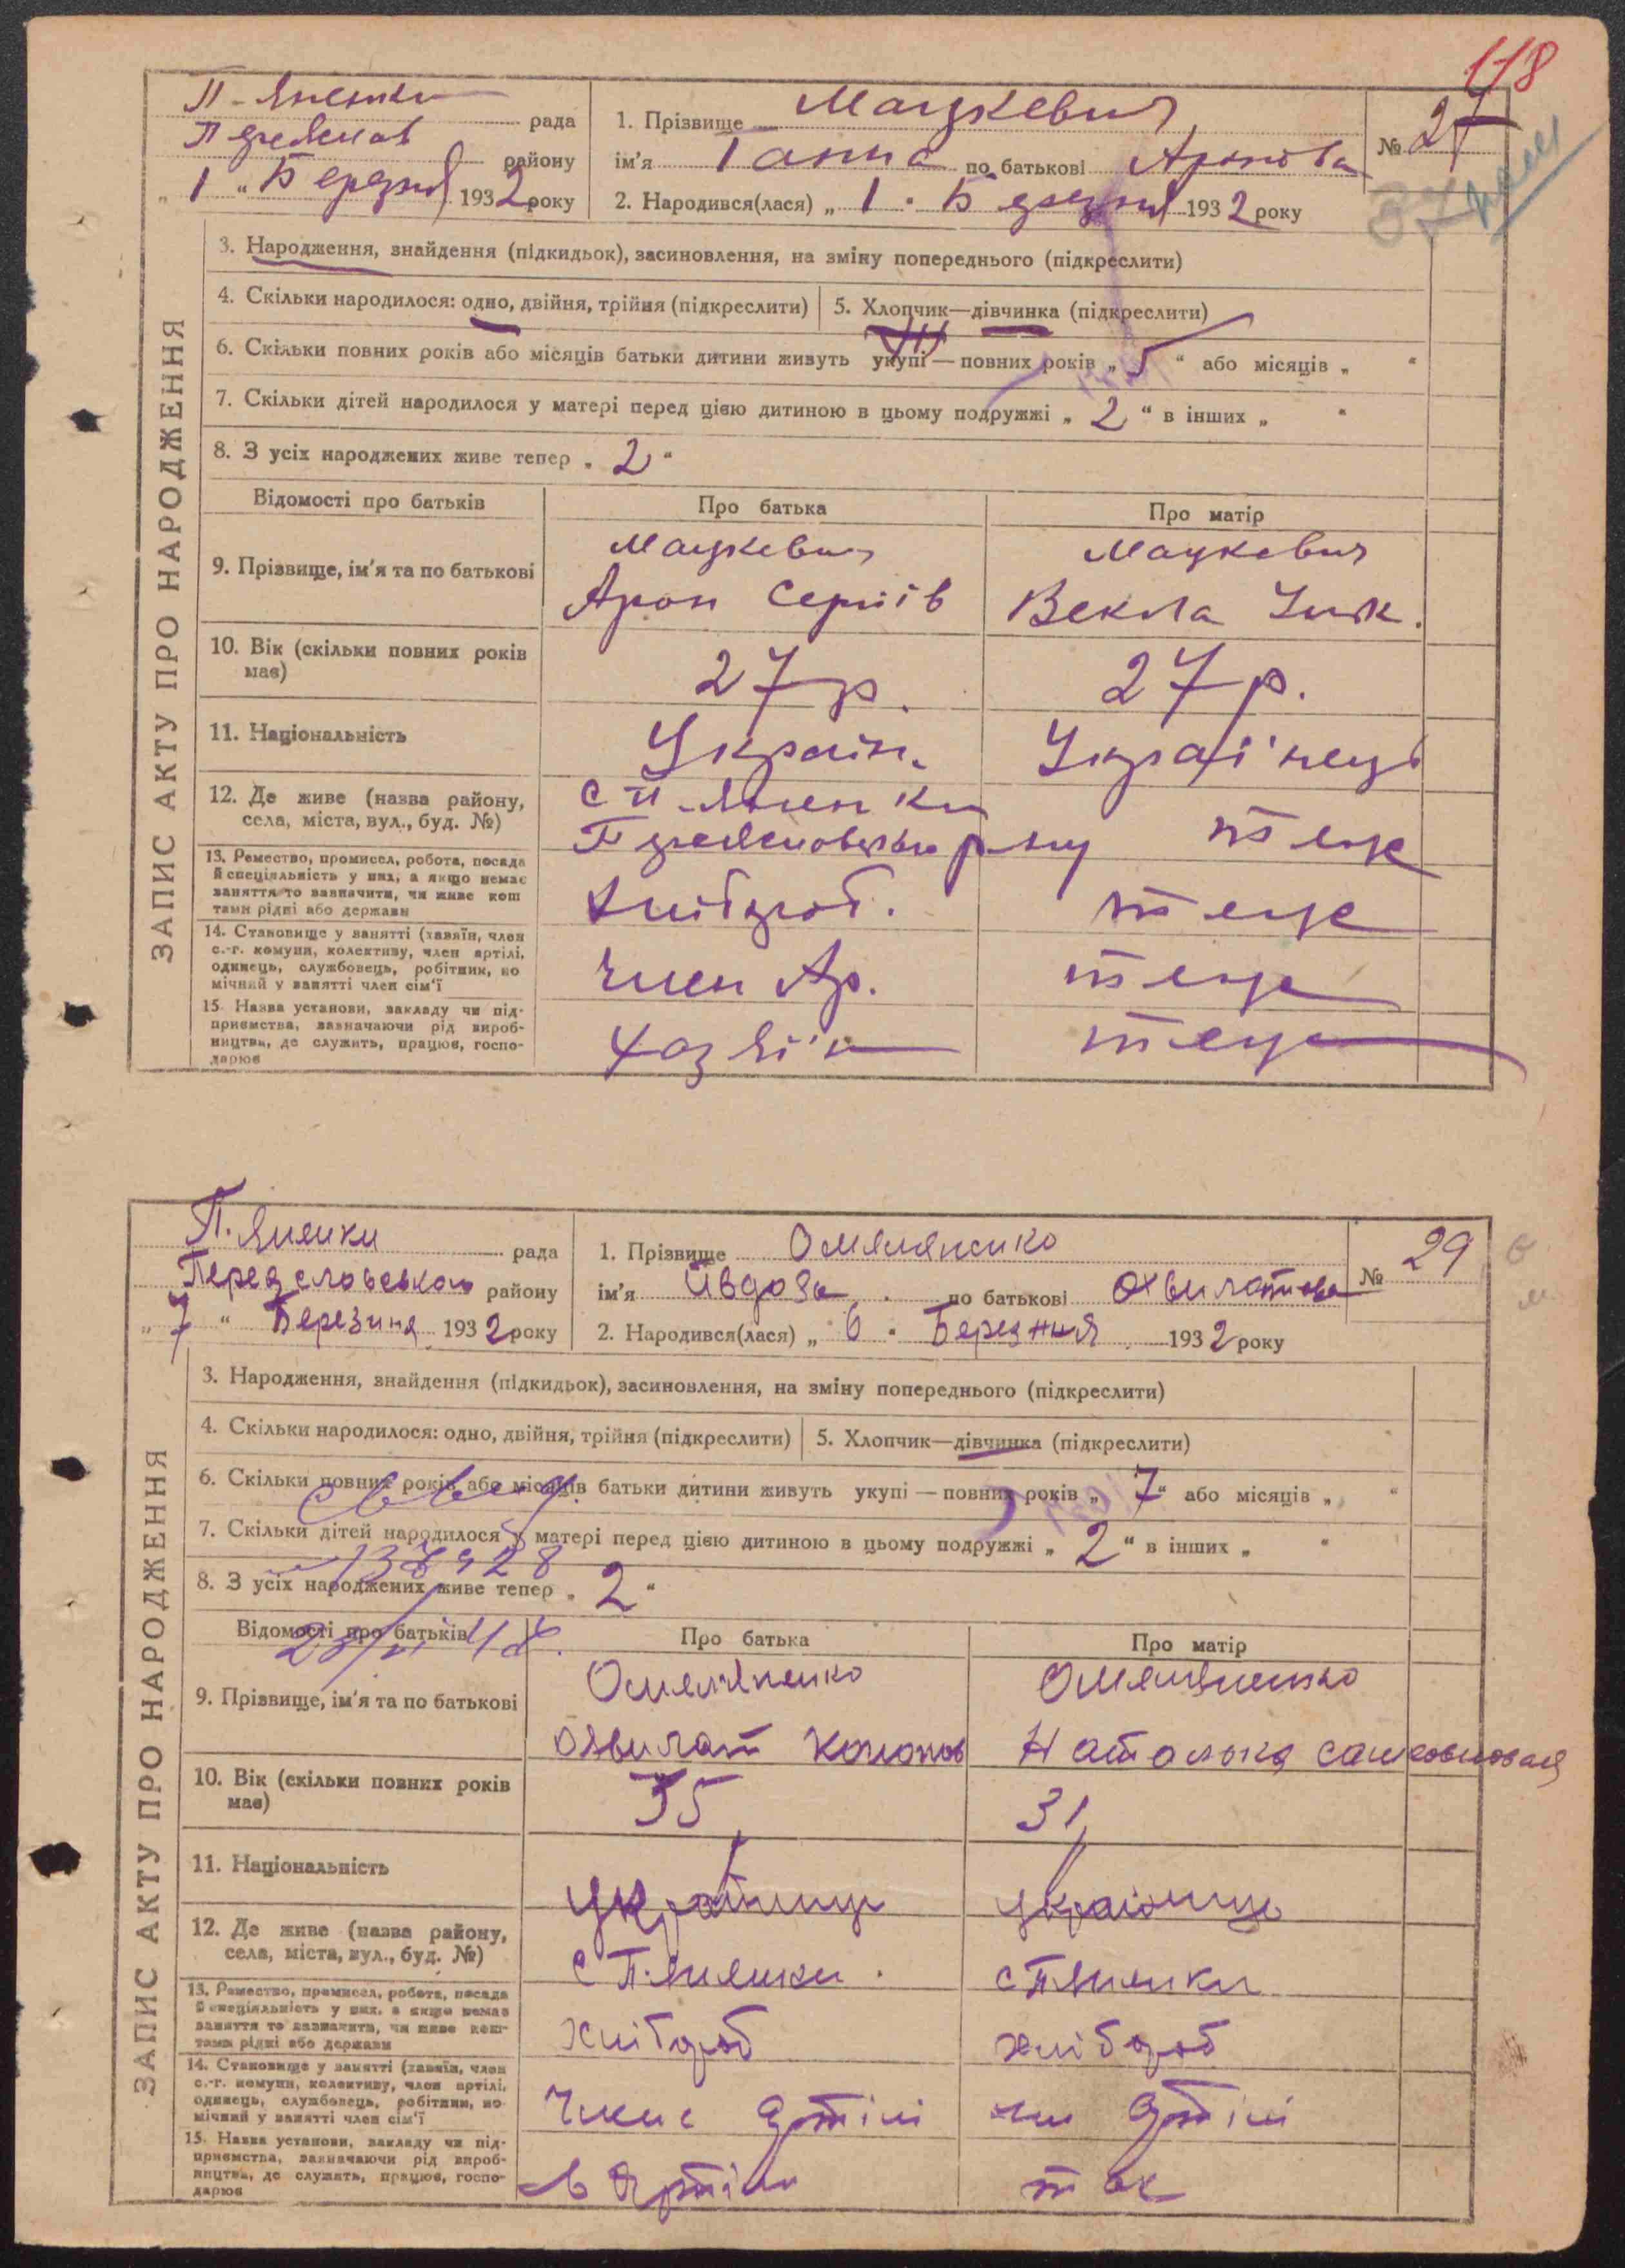 118
П-Яненки рада
Переяслав району
„ 1 " Березня 1932 року
1. Прізвище Мацкевич
ім'я Ганна по батькові Аронова
№ 27
2. Народився(лася) „ 1 " Березня 1932 року
ЗАПИС АКТУ ПРО НАРОДЖЕННЯ
3. Народження, знайдення (підкидьок), засиновлення, на зміну попереднього (підкреслити)
4. Скільки народилося: одно, двійня, трійня (підкреслити) 5. Хлопчик—дівчинка (підкреслити)
6. Скільки повних років або місяців батьки дитини живуть укупі — повних років „ 5 " або місяців „ "
7. Скільки дітей народилося у матері перед цією дитиною в цьому подружжі „ 2 " в інших „ "
8. З усіх народжених живе тепер „ 2 "
Відомості про батьків Про батька Про матір
9. Прізвище, ім'я та по батькові
Мацкевич Мацкевич
Арон Сергіїв Векла
10. Вік (скільки повних років має)
27 р. 27 р.
11. Національність
Україн. Украї'нець
12. Де живе (назва району, села, міста, вул., буд. №)
с П-Яненки
Переясловського р-ну теж
13. Ремество, промисел, робота, посада
й спеціяльність у них, а якщо немає
заняття то зазначити, чи живе кош
тами рідні або держави
Хлібороб. теже
14. Становище у занятті (хазяїн, член
с.-г. комуни, колективу, член артілі,
одинець, службовець, робітник, по
мічний у занятті член сім'ї
член Ар. теже
15. Назва установи, закладу чи під-
приємства, зазначаючи рід вироб-
ництва, де служить, працює, госпо-
дарює
Хазяїн теже
П. Яненки рада
Переясловського району
„ 7 " Березиня 1932 року
1. Прізвище Омеляненко
ім'я Ивдоза по батькові Охвилатова
№ 29
2. Народився(лася) „ 6 " Березння 1932 року
ЗАПИС АКТУ ПРО НАРОДЖЕННЯ
3. Народження, знайдення (підкидьок), засиновлення, на зміну попереднього (підкреслити)
4. Скільки народилося: одно, двійня, трійня (підкреслити) 5. Хлопчик—дівчинка (підкреслити)
6. Скільки повних років або місяців батьки дитини живуть укупі — повних років „ 7 " або місяців „ "
7. Скільки дітей народилося у матері перед цією дитиною в цьому подружжі „ 2 " в інших „ "
8. З усіх народжених живе тепер „ 2 "
Відомості про батьків Про батька Про матір
9. Прізвище, ім'я та по батькові
Омеляненко Омеляненко
Охвилат Кононов Наталька
10. Вік (скільки повних років має)
35 31
11. Національність
україниць україниць
12. Де живе (назва району, села, міста, вул., буд. №)
с П. Яненки с П Яненки
13. Ремество, промисел, робота, посада
й спеціяльність у них, а якщо немає
заняття то зазначити, чи живе кош-
тами рідні або держави
хлібороб хлібороб
14. Становище у занятті (хазяїн, член
с.-г. комуни, колективу, член артілі,
одинець, службовець, робітник, по
мічний у занятті член сім'ї
Член артілі чл артілі
15. Назва установи, закладу чи під-
приємства, зазначаючи рід вироб-
ництва, де служить, працює, госпо-
дарює
в Артіли так